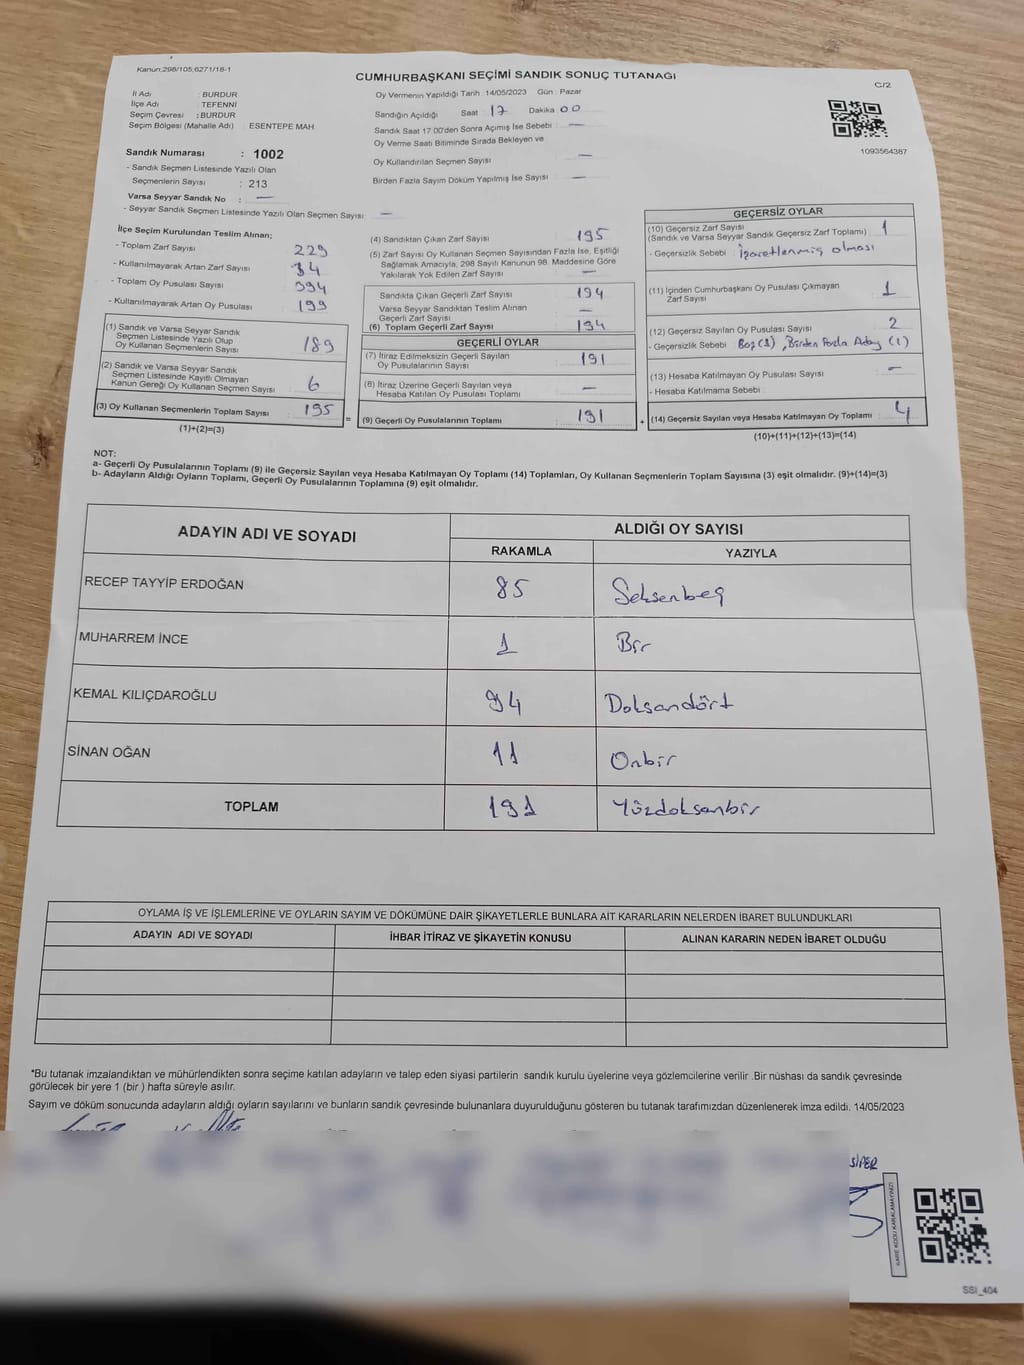 Kanun:298/105;6271/18-1
CUMHURBAŞKANI SEÇİMİ SANDIK SONUÇ TUTANAĞI
C/2
İl Adı : BURDUR
İlçe Adı : TEFENNİ
Seçim Çevresi : BURDUR
Seçim Bölgesi (Mahalle Adı) : ESENTEPE MAH
Sandık Numarası : 1002
- Sandık Seçmen Listesinde Yazılı Olan
Seçmenlerin Sayısı : 213
Varsa Seyyar Sandık No : —
- Seyyar Sandık Seçmen Listesinde Yazılı Olan Seçmen Sayısı: —
Oy Vermenin Yapıldığı Tarih :14/05/2023 Gün : Pazar
Sandığın Açıldığı Saat 17 Dakika 00
Sandık Saat 17:00'den Sonra Açılmış İse Sebebi : —
Oy Verme Saati Bitiminde Sırada Bekleyen ve
Oy Kullandırılan Seçmen Sayısı —
Birden Fazla Sayım Döküm Yapılmış İse Sayısı : —
1093564387
İlçe Seçim Kurulundan Teslim Alınan;
- Toplam Zarf Sayısı : 229
- Kullanılmayarak Artan Zarf Sayısı : 34
- Toplam Oy Pusulası Sayısı : 394
- Kullanılmayarak Artan Oy Pusulası : 199
(1) Sandık ve Varsa Seyyar Sandık
Seçmen Listesinde Yazılı Olup
Oy Kullanan Seçmenlerin Sayısı : 189
(2) Sandık ve Varsa Seyyar Sandık
Seçmen Listesinde Kayıtlı Olmayan
Kanun Gereği Oy Kullanan Seçmen Sayısı : 6
(3) Oy Kullanan Seçmenlerin Toplam Sayısı : 195
(1)+(2)=(3)
(4) Sandıktan Çıkan Zarf Sayısı : 195
(5) Zarf Sayısı Oy Kullanan Seçmen Sayısından Fazla İse, Eşitliği
Sağlamak Amacıyla, 298 Sayılı Kanunun 98. Maddesine Göre
Yakılarak Yok Edilen Zarf Sayısı : —
Sandıkta Çıkan Geçerli Zarf Sayısı : 194
Varsa Seyyar Sandıktan Teslim Alınan
Geçerli Zarf Sayısı : —
(6) Toplam Geçerli Zarf Sayısı : 194
GEÇERLİ OYLAR
(7) İtiraz Edilmeksizin Geçerli Sayılan
Oy Pusulalarının Sayısı : 191
(8) İtiraz Üzerine Geçerli Sayılan veya
Hesaba Katılan Oy Pusulası Toplamı : —
(9) Geçerli Oy Pusulalarının Toplamı : 191
=
+
GEÇERSİZ OYLAR
(10) Geçersiz Zarf Sayısı : 1
(Sandık ve Varsa Seyyar Sandık Geçersiz Zarf Toplamı)
- Geçersizlik Sebebi : İşaretlenmiş olması
(11) İçinden Cumhurbaşkanı Oy Pusulası Çıkmayan
Zarf Sayısı : 1
(12) Geçersiz Sayılan Oy Pusulası Sayısı : 2
- Geçersizlik Sebebi : Boş (1), Birden Fazla Aday (1)
(13) Hesaba Katılmayan Oy Pusulası Sayısı : —
- Hesaba Katılmama Sebebi :
(14) Geçersiz Sayılan veya Hesaba Katılmayan Oy Toplamı : 4
(10)+(11)+(12)+(13)=(14)
NOT:
a- Geçerli Oy Pusulalarının Toplamı (9) ile Geçersiz Sayılan veya Hesaba Katılmayan Oy Toplamı (14) Toplamları, Oy Kullanan Seçmenlerin Toplam Sayısına (3) eşit olmalıdır. (9)+(14)=(3)
b- Adayların Aldığı Oyların Toplamı, Geçerli Oy Pusulalarının Toplamına (9) eşit olmalıdır.
ADAYIN ADI VE SOYADI
ALDIĞI OY SAYISI
RAKAMLA YAZIYLA
RECEP TAYYİP ERDOĞAN 85 Seksenbeş
MUHARREM İNCE 1 Bir
KEMAL KILIÇDAROĞLU 94 Doksandört
SİNAN OĞAN 11 Onbir
TOPLAM 191 Yüzdoksanbir
OYLAMA İŞ VE İŞLEMLERİNE VE OYLARIN SAYIM VE DÖKÜMÜNE DAİR ŞİKAYETLERLE BUNLARA AİT KARARLARIN NELERDEN İBARET BULUNDUKLARI
ADAYIN ADI VE SOYADI İHBAR İTİRAZ VE ŞİKAYETİN KONUSU ALINAN KARARIN NEDEN İBARET OLDUĞU
*Bu tutanak imzalandıktan ve mühürlendikten sonra seçime katılan adayların ve talep eden siyasi partilerin sandık kurulu üyelerine veya gözlemcilerine verilir .Bir nüshası da sandık çevresinde
görülecek bir yere 1 (bir ) hafta süreyle asılır.
Sayım ve döküm sonucunda adayların aldığı oyların sayılarını ve bunların sandık çevresinde bulunanlara duyurulduğunu gösteren bu tutanak tarafımızdan düzenlenerek imza edildi. 14/05/2023
SİPER
KARE KODU KARALAMAYINIZ!
SSI_404